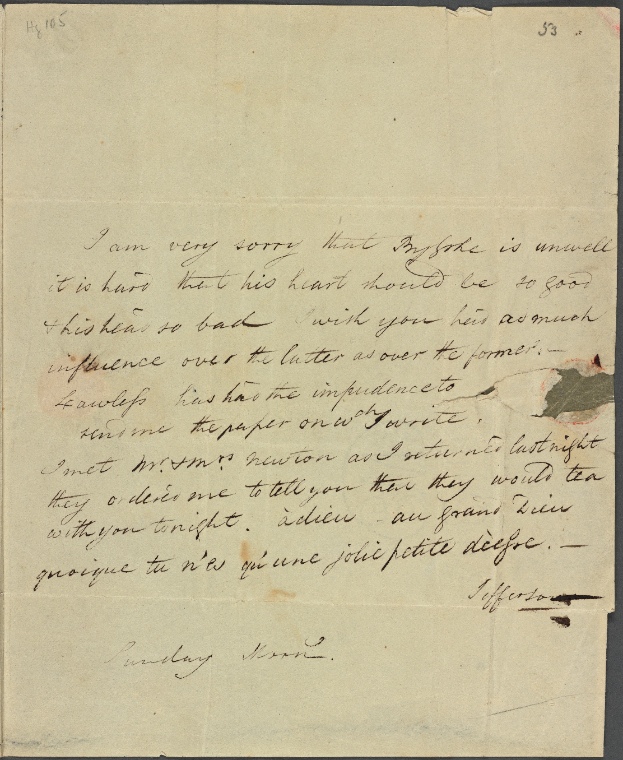 Hg 105
53
I am very sorry that is unwell
it is hard that his heart should be so good
& his head so bad I wish you had as much
influence over the latter as over the former. —
Lawless has had the impudence to
send me the paper on wch I write.
I met Mr. & Mrs Newton as I returned last night
they ordered me to tell you that they would tea
with you tonight. adieu - au grand Dieu
quoique tu n'es qu'une jolie petite déesse. —
Jefferson
Sunday Morn.